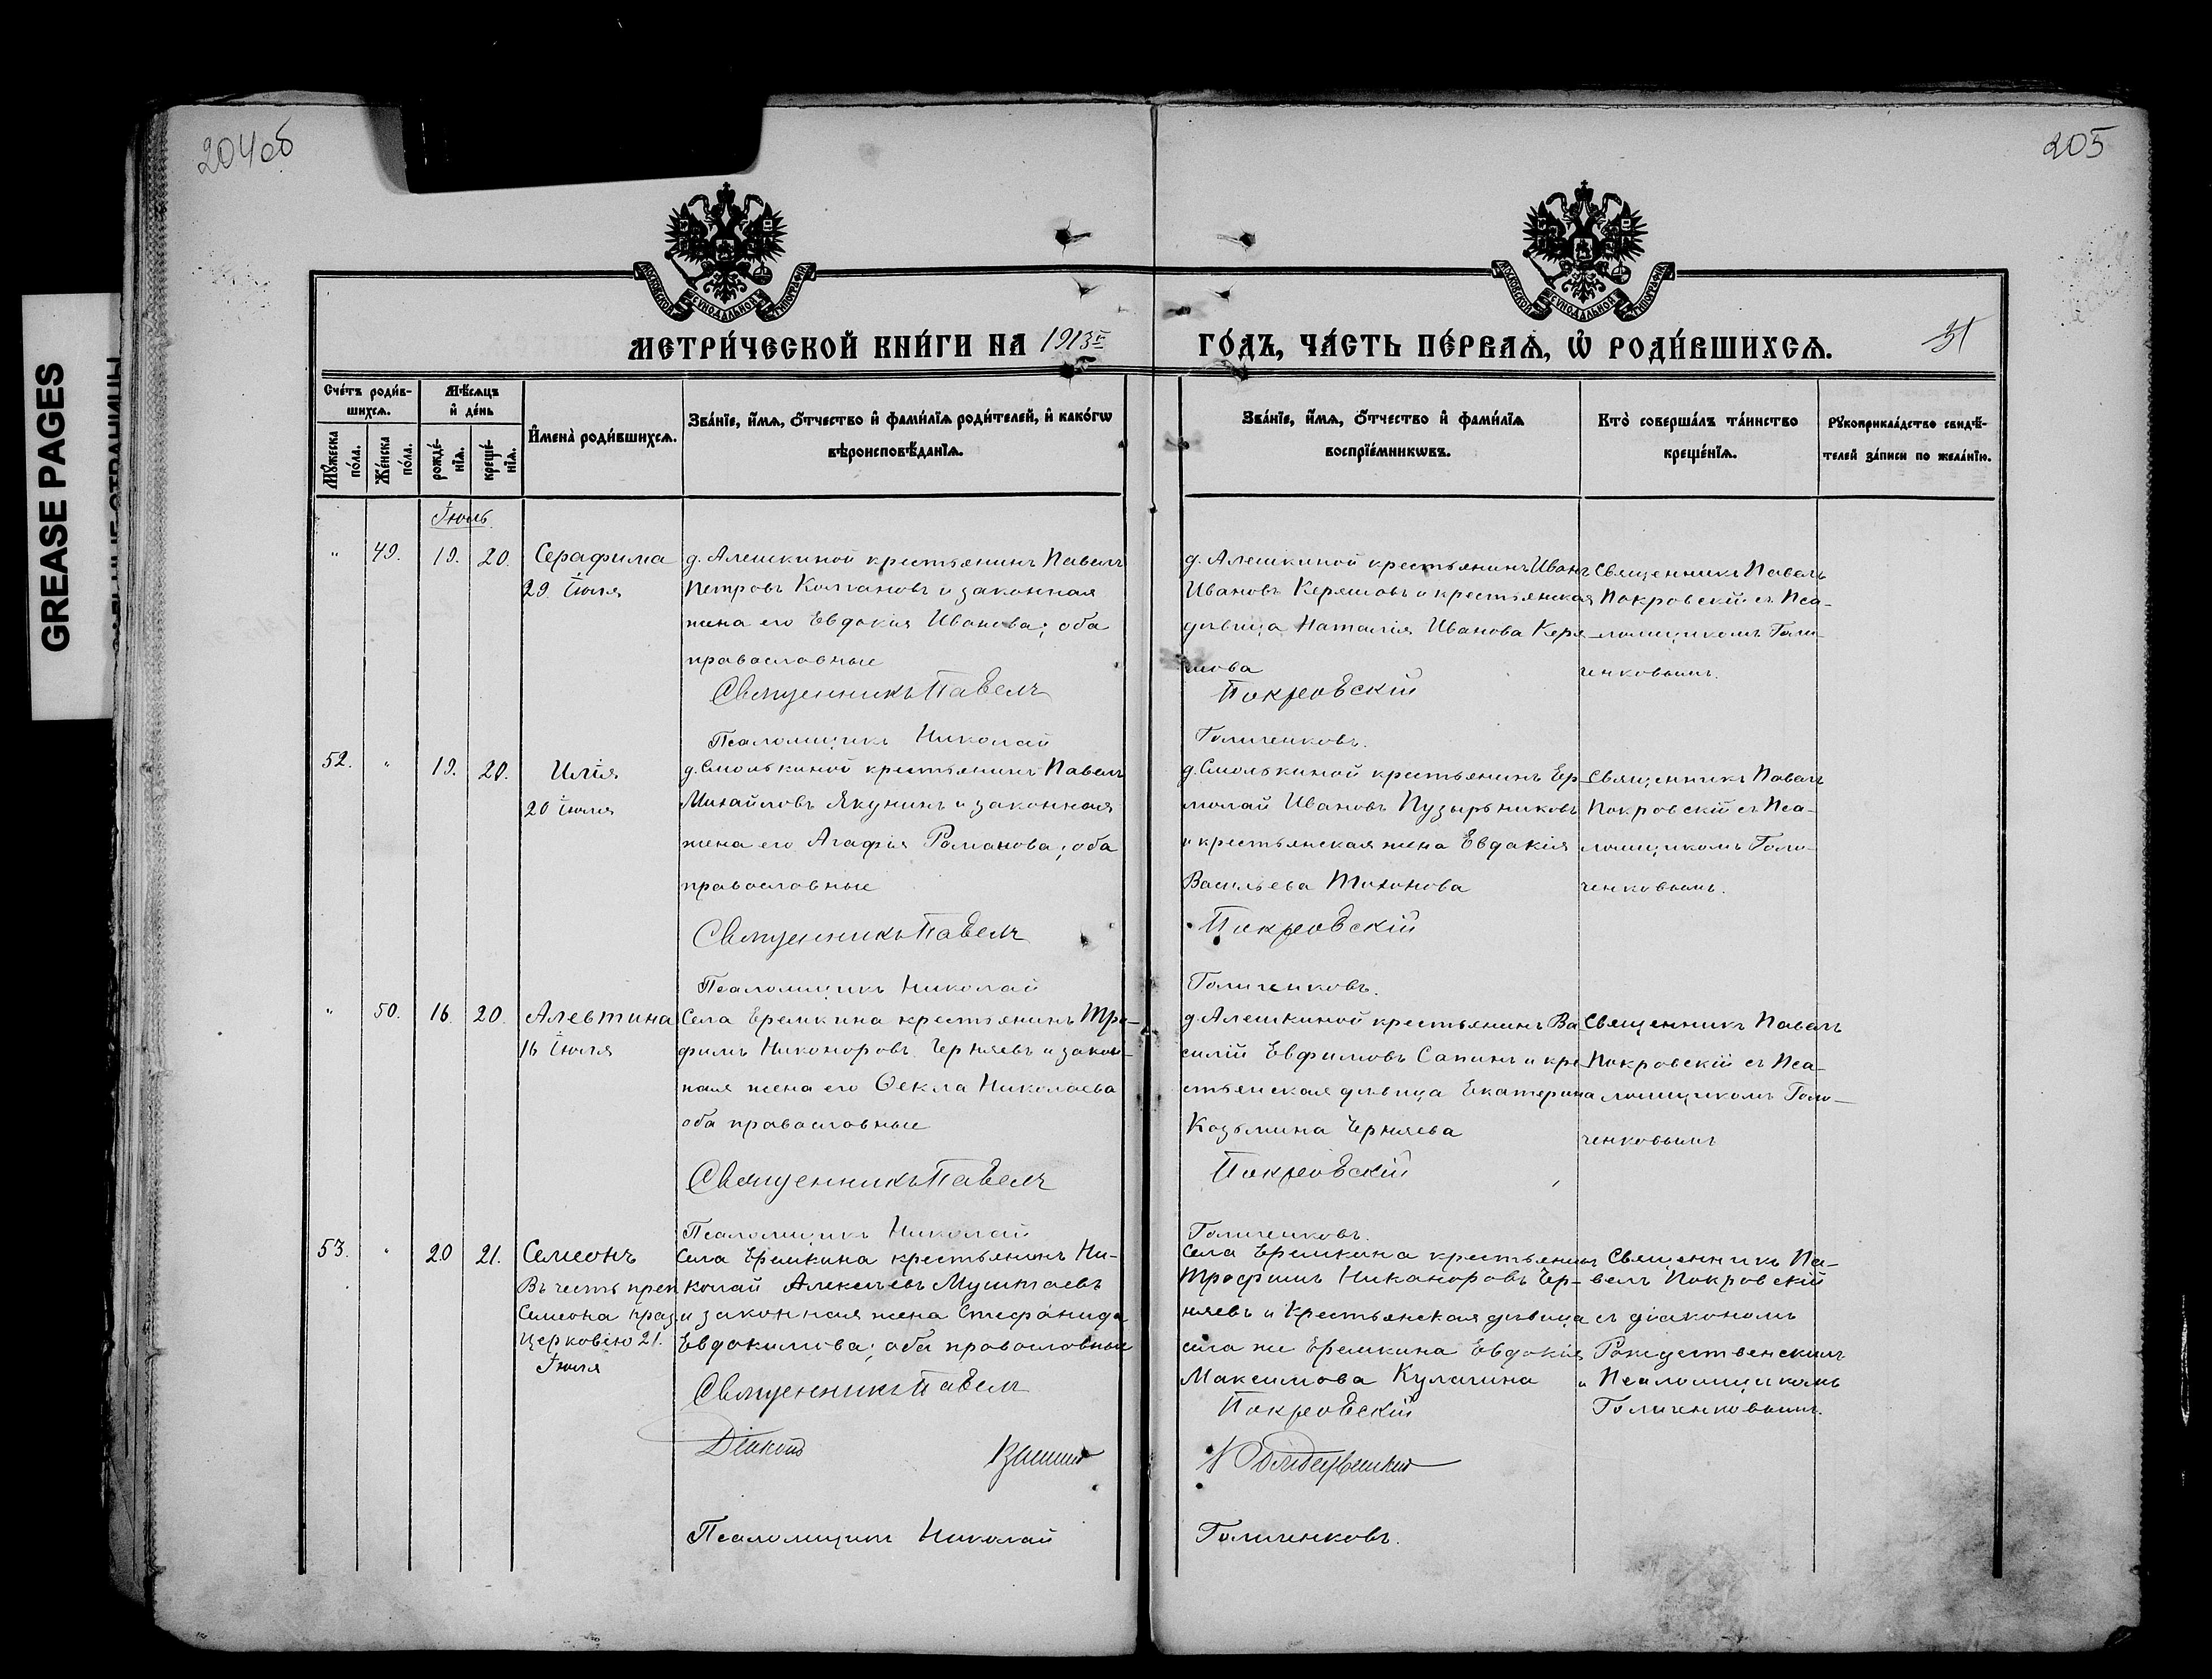 GREASE PAGES
204 об
205
МОСКОВСКОЙ СѴНОДАЛЬНОЙ ТИПОГРАФІИ
МОСКОВСКОЙ СѴНОДАЛЬНОЙ ТИПОГРАФІИ
МЕТРИ́ЧЕСКОЙ КНИ́ГИ НА 1913й
ГО́ДЪ, ЧА́СТЬ ПЕ́РВАѦ, Ѡ҆ РОДИ́ВШИХСѦ.
31
Сче́тъ роди́в-
шихсѧ.
Мѣ́сѧцъ
и҆ де́нь
И҆мена̀ роди́вшихсѧ.
Зва́нїе, и҆́мѧ, ѻ҆́тчество и҆ фами́лїѧ роди́телей, и҆ како́гѡ
вѣроисповѣ́данїѧ.
Мꙋ́жеска
по́ла.
Же́нска
по́ла.
рожде́-
нїѧ.
креще́-
нїѧ.
Зва́нїе, и҆́мѧ, ѻ҆́тчество и҆ фами́лїѧ
воспрїе́мникѡвъ.
Кто̀ соверша́лъ та́инство
креще́нїѧ.
Рꙋкоприкла́дство свидѣ́-
телей за́писи по жела́нїю.
Іюль.
" 49. 19. 20. Серафима
29 Іюля
д. Алешкиной крестьянинъ Павелъ
Петровъ Колгановъ и законная
жена его Евдокія Иванова; оба
православные
Священникъ Павелъ
Псаломщикъ Николай
д. Алешкиной крестьянинъ Иванъ
Ивановъ Керешовъ и крестьянская
дѣвица Наталія Иванова Кере-
шова
Покровскій
Голиченковъ.
Священникъ Павелъ
Покровскій съ Пса-
ломщикомъ Голи-
ченковымъ.
52. " 19. 20. Илія
20 Іюля
д. Смолькиной крестьянинъ Павелъ
Михайловъ Якунинъ и законная
жена его Агафія Романова; оба
православные
Священникъ Павелъ
Псаломщикъ Николай
д. Смолькиной крестьянинъ Ер-
молай Ивановъ Пузырьниковъ
и крестьянская жена Евдокія
Васильева Тихонова
Покровскій
Голиченковъ.
Священникъ Павелъ
Покровскій съ Пса-
ломщикомъ Голи-
ченковымъ.
" 50. 16. 20. Алевтина
16 Іюля
Села Еремкина крестьянинъ Тро-
фимъ Никоноровъ Черняевъ и закон-
ная жена его Ѳекла Николаева
оба православные
Священникъ Павелъ
Псаломщикъ Николай
д. Алешкиной крестьянинъ Ва-
силій Евфимовъ Сапинъ и кре-
стьянская дѣвица Екатерина
Козьмина Черняева
Покровскій
Голиченковъ.
Священникъ Павелъ
Покровскій съ Пса-
ломщикомъ Голи-
ченковымъ
53. " 20 21. Семеонъ
Въ честь преп
Семеона праз.
Церковію 21.
Іюля
Села Еремкина крестьянинъ Ни-
колай Алексѣевъ Муштаевъ
и законная жена Стефанида
Евдокимова; оба православные
Священникъ Павелъ
Діаконъ
Псаломщикъ Николай
Села Еремкина крестьянинъ
Трофимъ Никаноровъ Чер-
няевъ и Крестьянская дѣвица
села же Еремкина Евдокія
Максимова Кулагина
Покровскій
Голиченковъ.
Священникъ Па-
велъ Покровскій
съ діакономъ
Рождественскимъ
и Псаломщикомъ
Голиченковымъ.